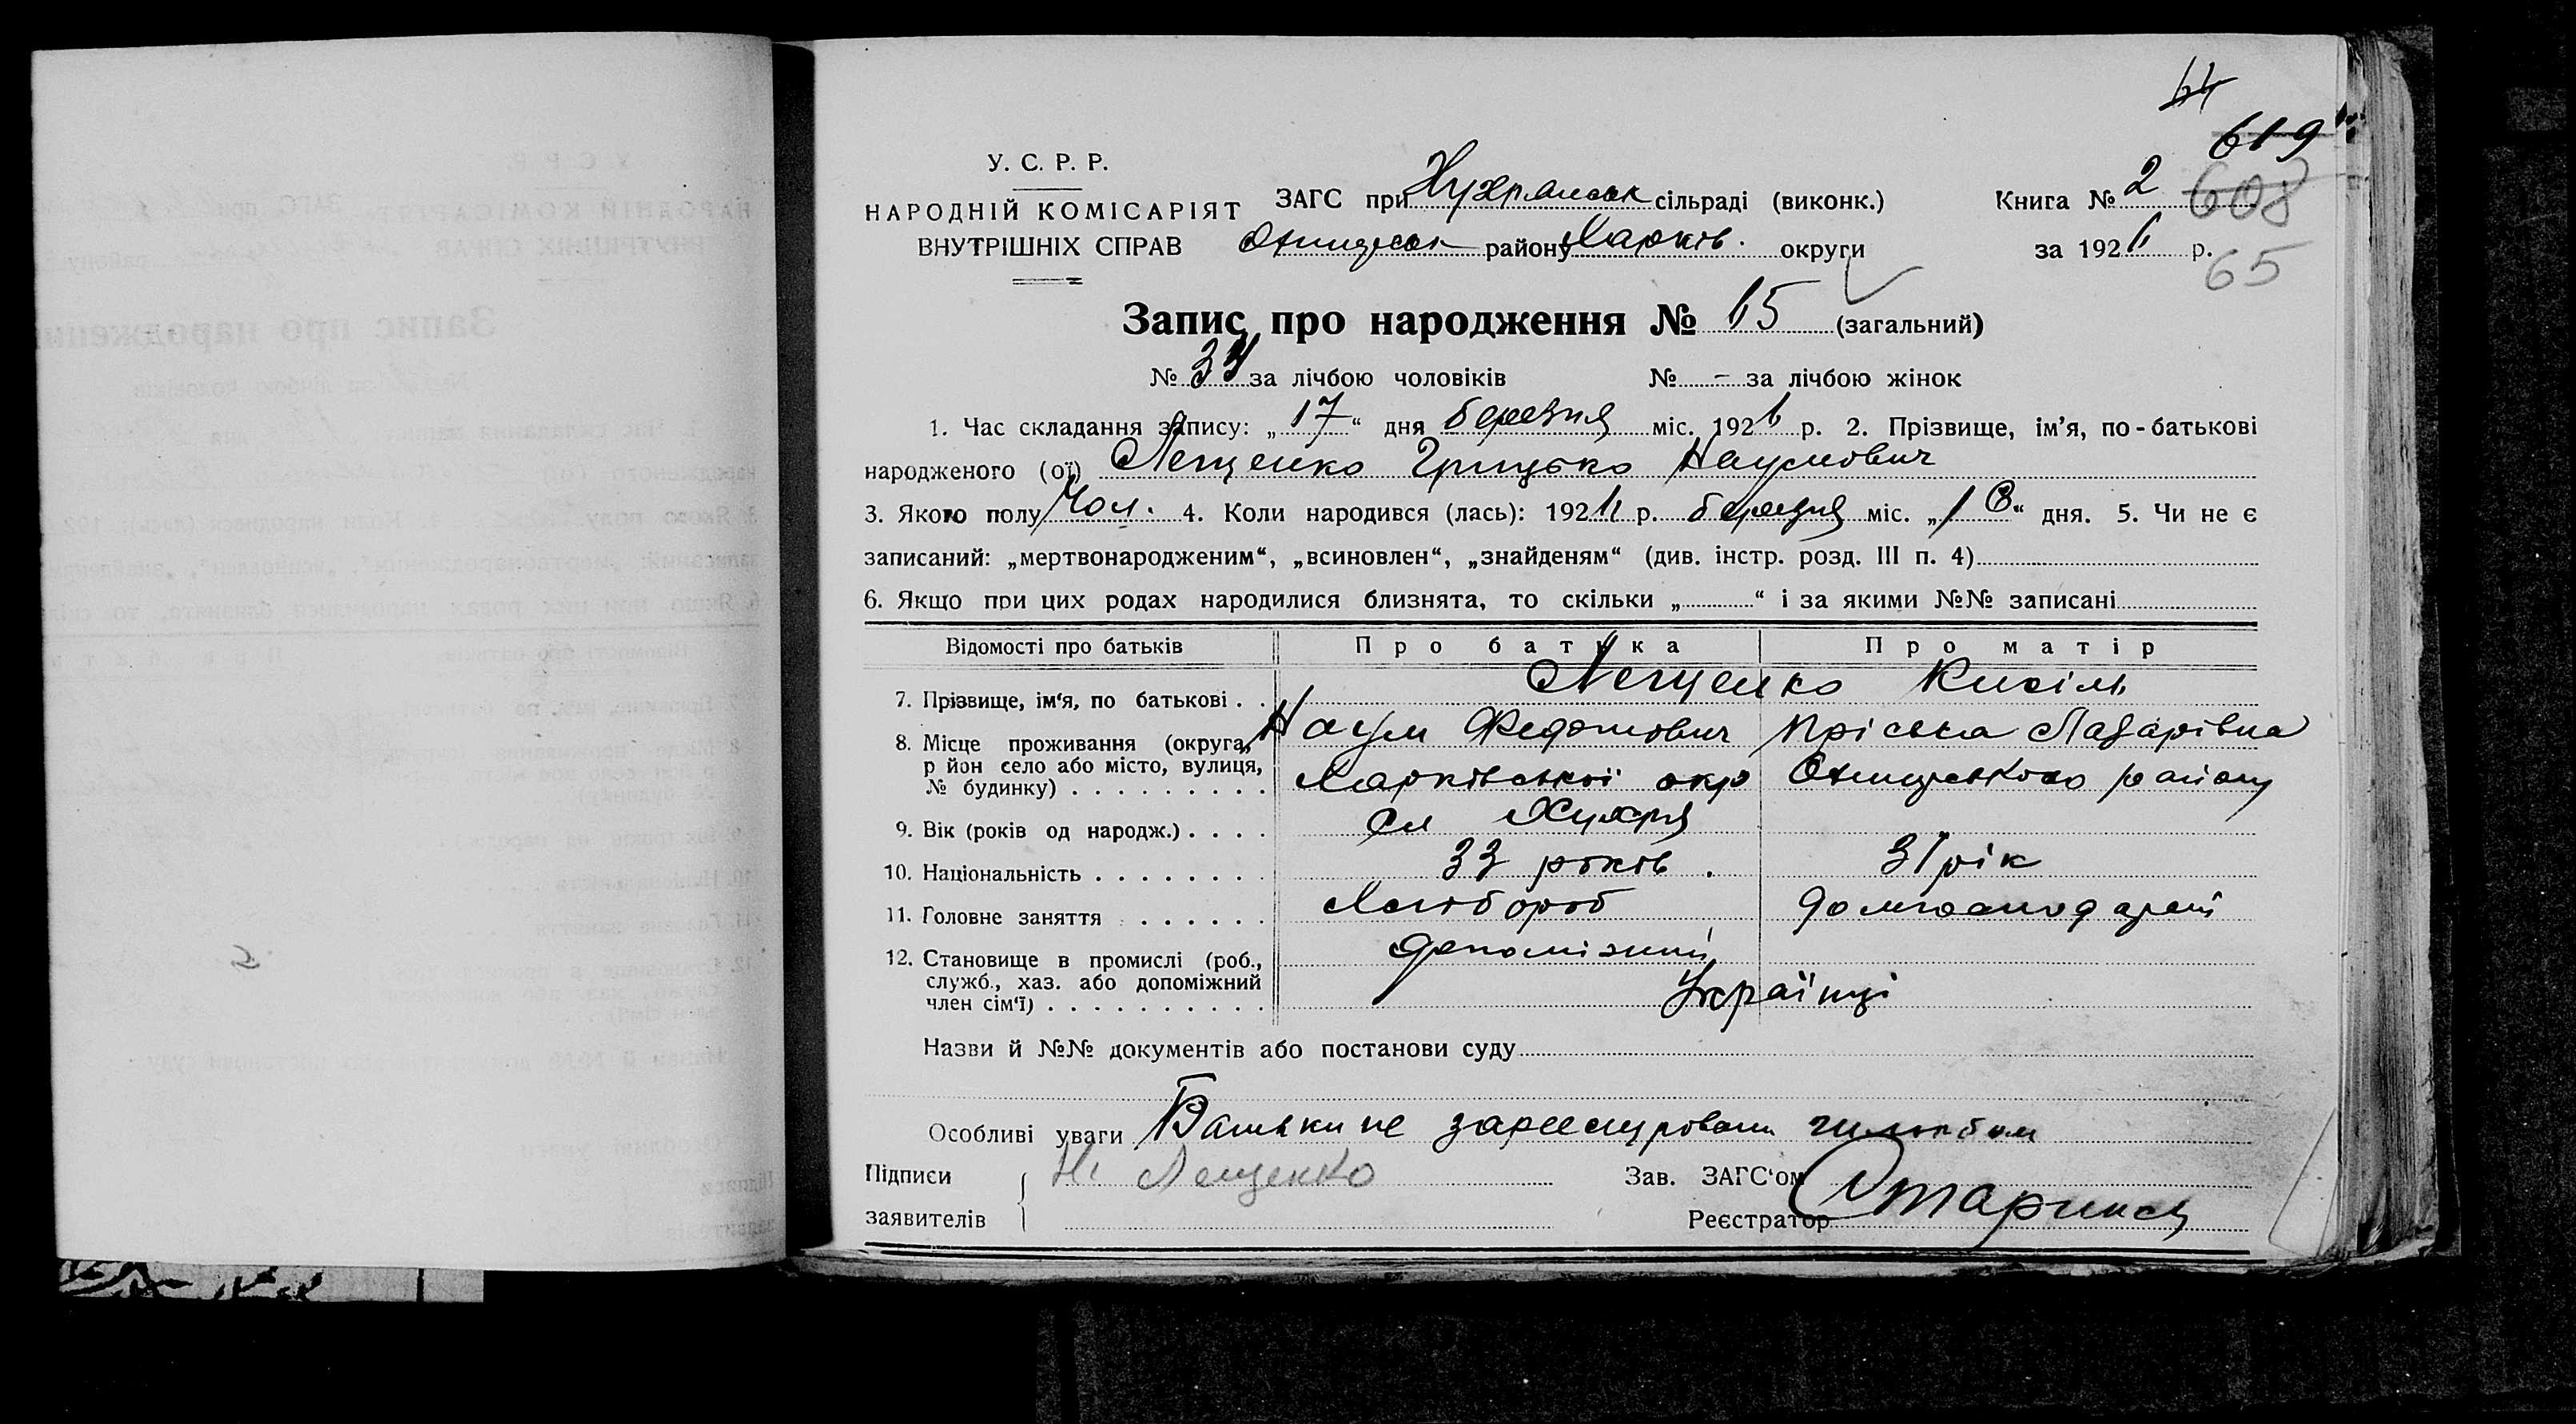 44
619
У. С. Р. Р.
НАРОДНІЙ КОМІСАРІЯТ
ВНУТРІШНІХ СПРАВ
ЗАГС при Хухрянськ сільраді (виконк.)
Охтирськ району Харків. округи
Книга № 2
608
за 1926 р.
65
Запис про народження № 65 (загальний)
№ 34 за лічбою чоловіків № - за лічбою жінок
1. Час складання запису: „17“ дня березня міс. 1926 р. 2. Прізвище, ім’я, по-батькові
народженого (ої) Лещенко Грицько Наумович
3. Якого полу Чол. 4. Коли народився (лась): 1926 р. березня міс. „1 “ дня. 5. Чи не є
записаний: „мертвонародженим“, „всиновлен“, „знайденям“ (див. інстр. розд. III п. 4)
6. Якщо при цих родах народилися близнята, то скільки „ “ і за якими №№ записані
Відомості про батьків Про батька Про матір
7. Прізвище, ім‘я, по батькові . . Лещенко Кисіль
8. Місце проживання (округа, Наум Федотович Пріська Лазарівна
р йон село або місто, вулиця,
№ будинку) . . . . . . . . . Харківської окр Охтирського району
9. Вік (років од народж.) . . . . сл Хухря
10. Національність . . . . . . . . 33 років . 31 рік
11. Головне заняття . . . . . . Хлібороб домгосподарст
12. Становище в промислі (роб., допоміжний
служб., хаз. або допоміжний
член сім‘ї) . . . . . . . . . . Українці
Назви й №№ документів або постанови суду
Особливі уваги Батьки не зареєстровані шлюбом
Підписи Н. Лещенко Зав. ЗАГС‘ом
заявителів Реєстратор